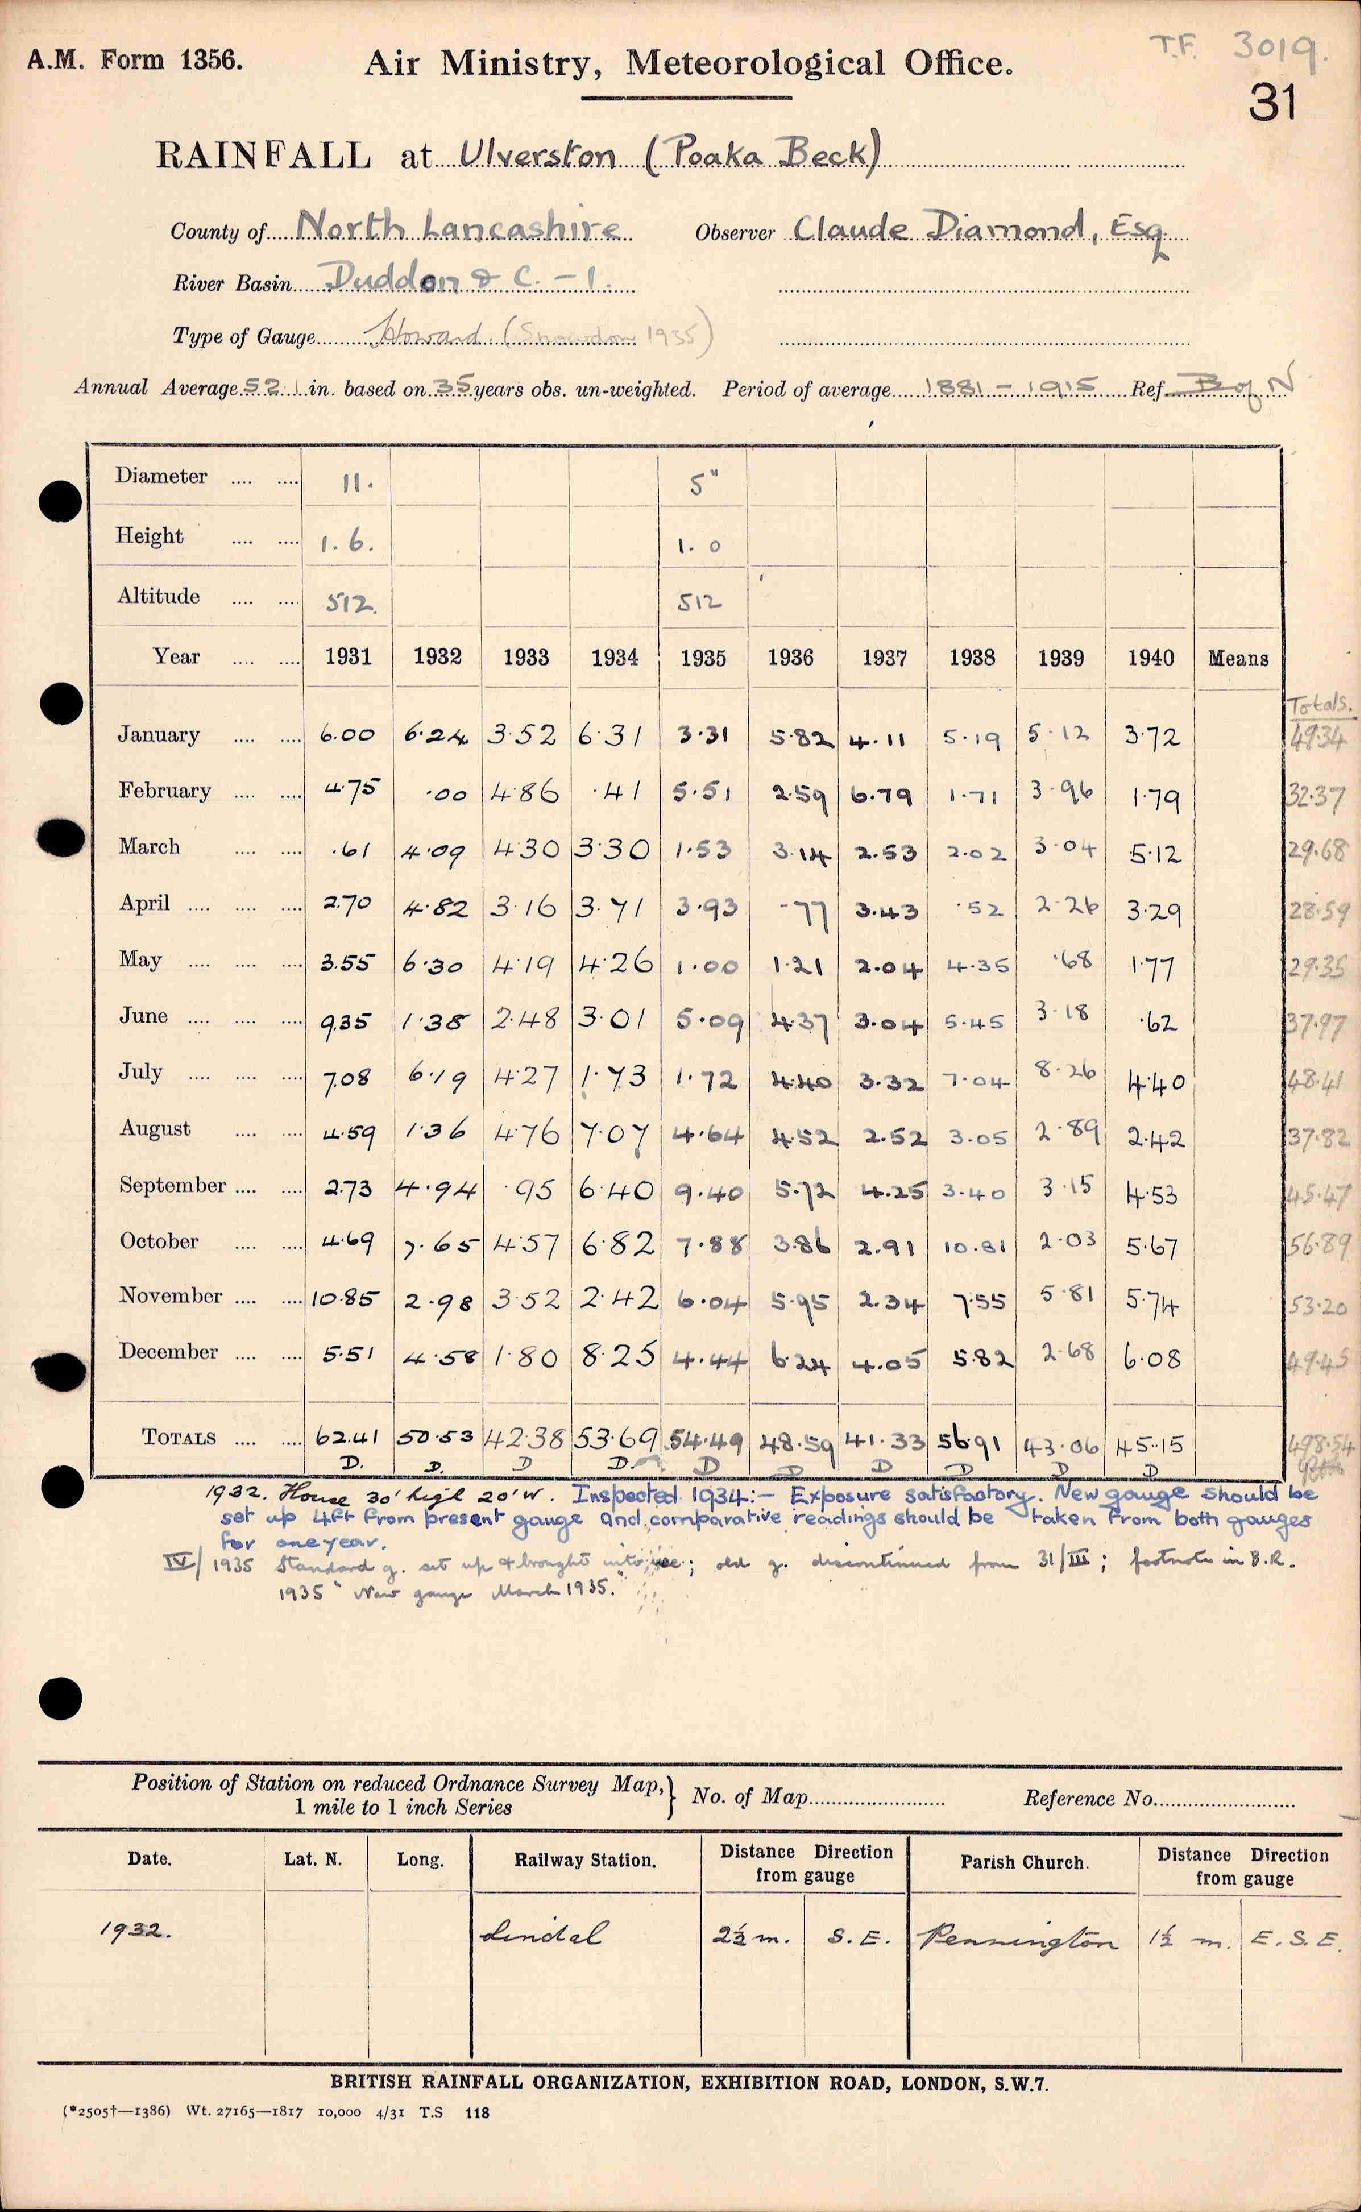 A.M. Form 1356. Air Ministry, Meteorological Office. T.F. 3019.
31
RAINFALL at Ulverston (Poaka Beck)
County of North Lancashire Observer Claude Diamond, Esq
River Basin Duddon & C. - 1.
Type of Gauge Howard. (Snowdon 1935)
Annual Average 52.1 in. based on 35 years obs. un-weighted. Period of average 1881 - 1915 Ref. B of N
Diameter 11. 5"
Height 1.6. 1.0
Altitude 512. 512
Year 1931 1932 1933 1934 1935 1936 1937 1938 1939 1940 Means
Totals.
January 6.00 6.24 3.52 6.31 3.31 5.82 4.11 5.19 5.12 3.72 49.34
February 4.75 .00 4.86 .41 5.51 2.59 6.79 1.71 3.96 1.79 32.37
March .61 4.09 4.30 3.30 1.53 3.14 2.53 2.02 3.04 5.12 29.68
April 2.70 4.82 3.16 3.71 3.93 .77 3.43 .52 2.26 3.29 28.59
May 3.55 6.30 4.19 4.26 1.00 1.21 2.04 4.35 .68 1.77 29.35
June 9.35 1.38 2.48 3.01 5.09 4.37 3.04 5.45 3.18 .62 37.97
July 7.08 6.19 4.27 1.73 1.72 4.40 3.32 7.04 8.26 4.40 48.41
August 4.59 1.36 4.76 7.07 4.64 4.52 2.52 3.05 2.89 2.42 37.82
September 2.73 4.94 .95 6.40 9.40 5.72 4.25 3.40 3.15 4.53 45.47
October 4.69 7.65 4.57 6.82 7.88 3.86 2.91 10.81 2.03 5.67 56.89
November 10.85 2.98 3.52 2.42 6.04 5.95 2.34 7.55 5.81 5.74 53.20
December 5.51 4.58 1.80 8.25 4.44 6.24 4.05 5.82 2.68 6.08 49.45
TOTALS 62.41 50.53 42.38 53.69 54.49 48.59 41.33 56.91 43.06 45.15 498.54
D. D. D D. D D D D D D
1932. House 30' high 20' W. Inspected 1934:- Exposure satisfactory. New gauge should be
set up 4ft from present gauge and comparative readings should be taken from both gauges
for one year.
IV/1935 Standard g. set up & brought into use; old g. discontinued from 31/III; footnote in B.R.
1935 "New gauge March 1935."
Position of Station on reduced Ordnance Survey Map, } No. of Map Reference No.
1 mile to 1 inch Series
Date. Lat. N. Long. Railway Station. Distance Direction from gauge Parish Church. Distance Direction from gauge
1932. Lindal 2½ m. S.E. Pennington 1½ m. E.S.E.
BRITISH RAINFALL ORGANIZATION, EXHIBITION ROAD, LONDON, S.W.7.
(*2505†—1386) Wt. 27165—1817 10,000 4/31 T.S 118